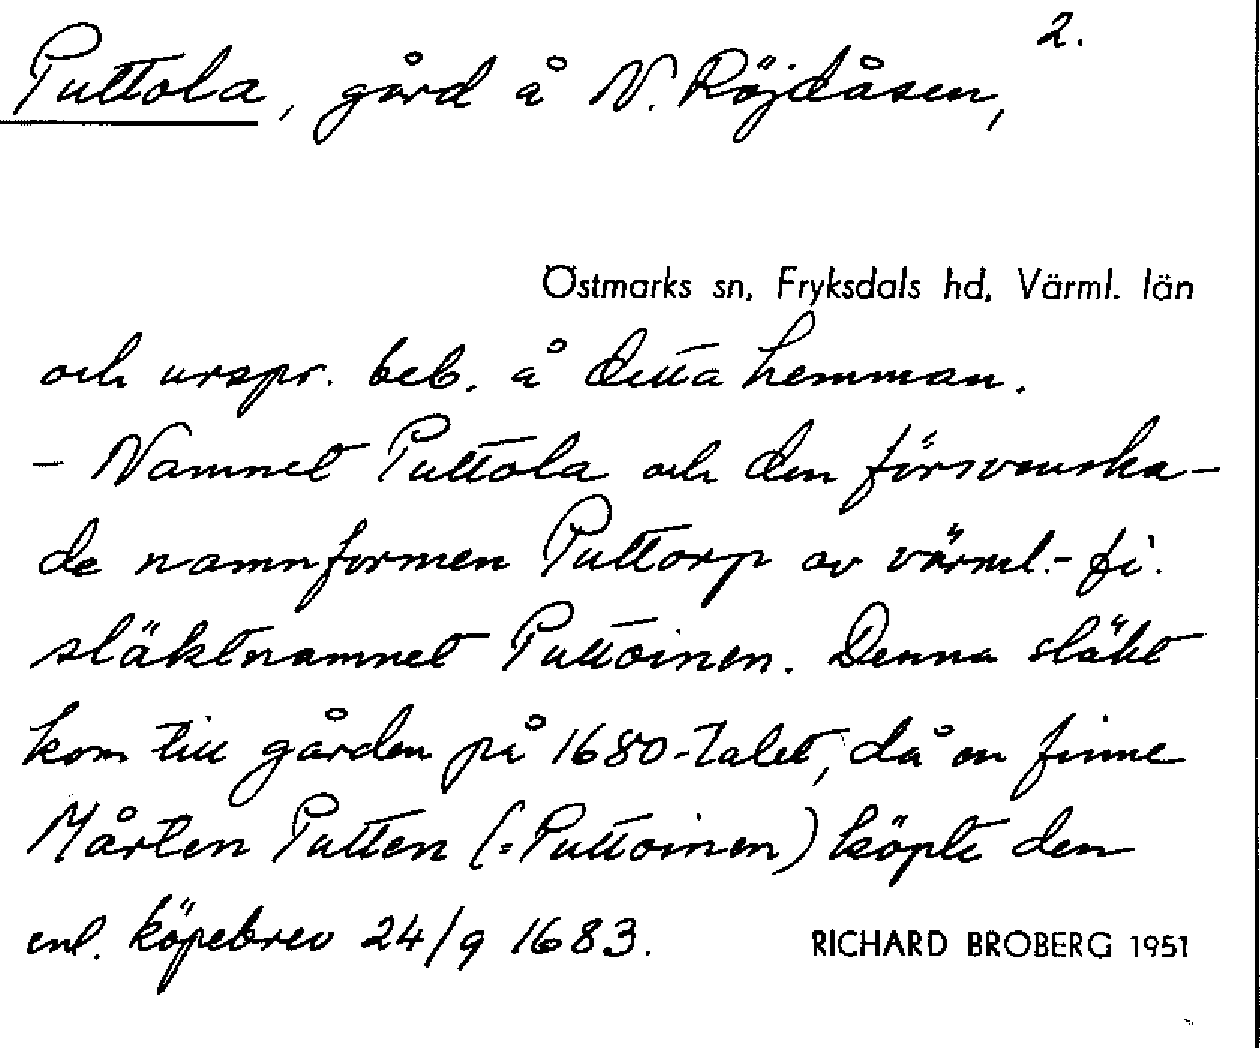 2.
Puttola, gård å N. Röjdåsen,
Östmarks sn, Fryksdals hd, Värml. län
och urspr. beb. å detta hemman.
- Namnet Puttola och den försvenska-
de namnformen Puttorp av värml.-fi.
släktnamnet Puttoinen. Denna släkt
kom till gården på 1680-talet, då en finne
Mårten Putten (=Puttoinen) köpte den
enl. köpebrev 24/9 1683.
RICHARD BROBERG 1951